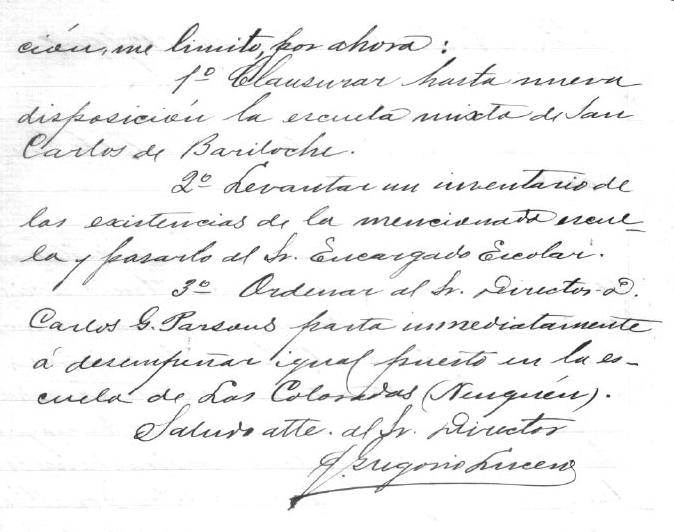 ción, me limito, por ahora:
1º Clausurar hasta nueva
disposición la escuela mixta de San
Carlos de Bariloche.
2º Levantar un inventario de
las existencias de la mencionada escue-
la y pasarlo al Sr. Encargado Escolar.
3º Ordenar al Sr. Director D.
Carlos G. Parsons parta inmediatamente
á desempeñar igual puesto en la es-
cuela de Las Coloradas (Neuquén).
Saludo atte. al Sr. Director
J. Gregorio Lucero